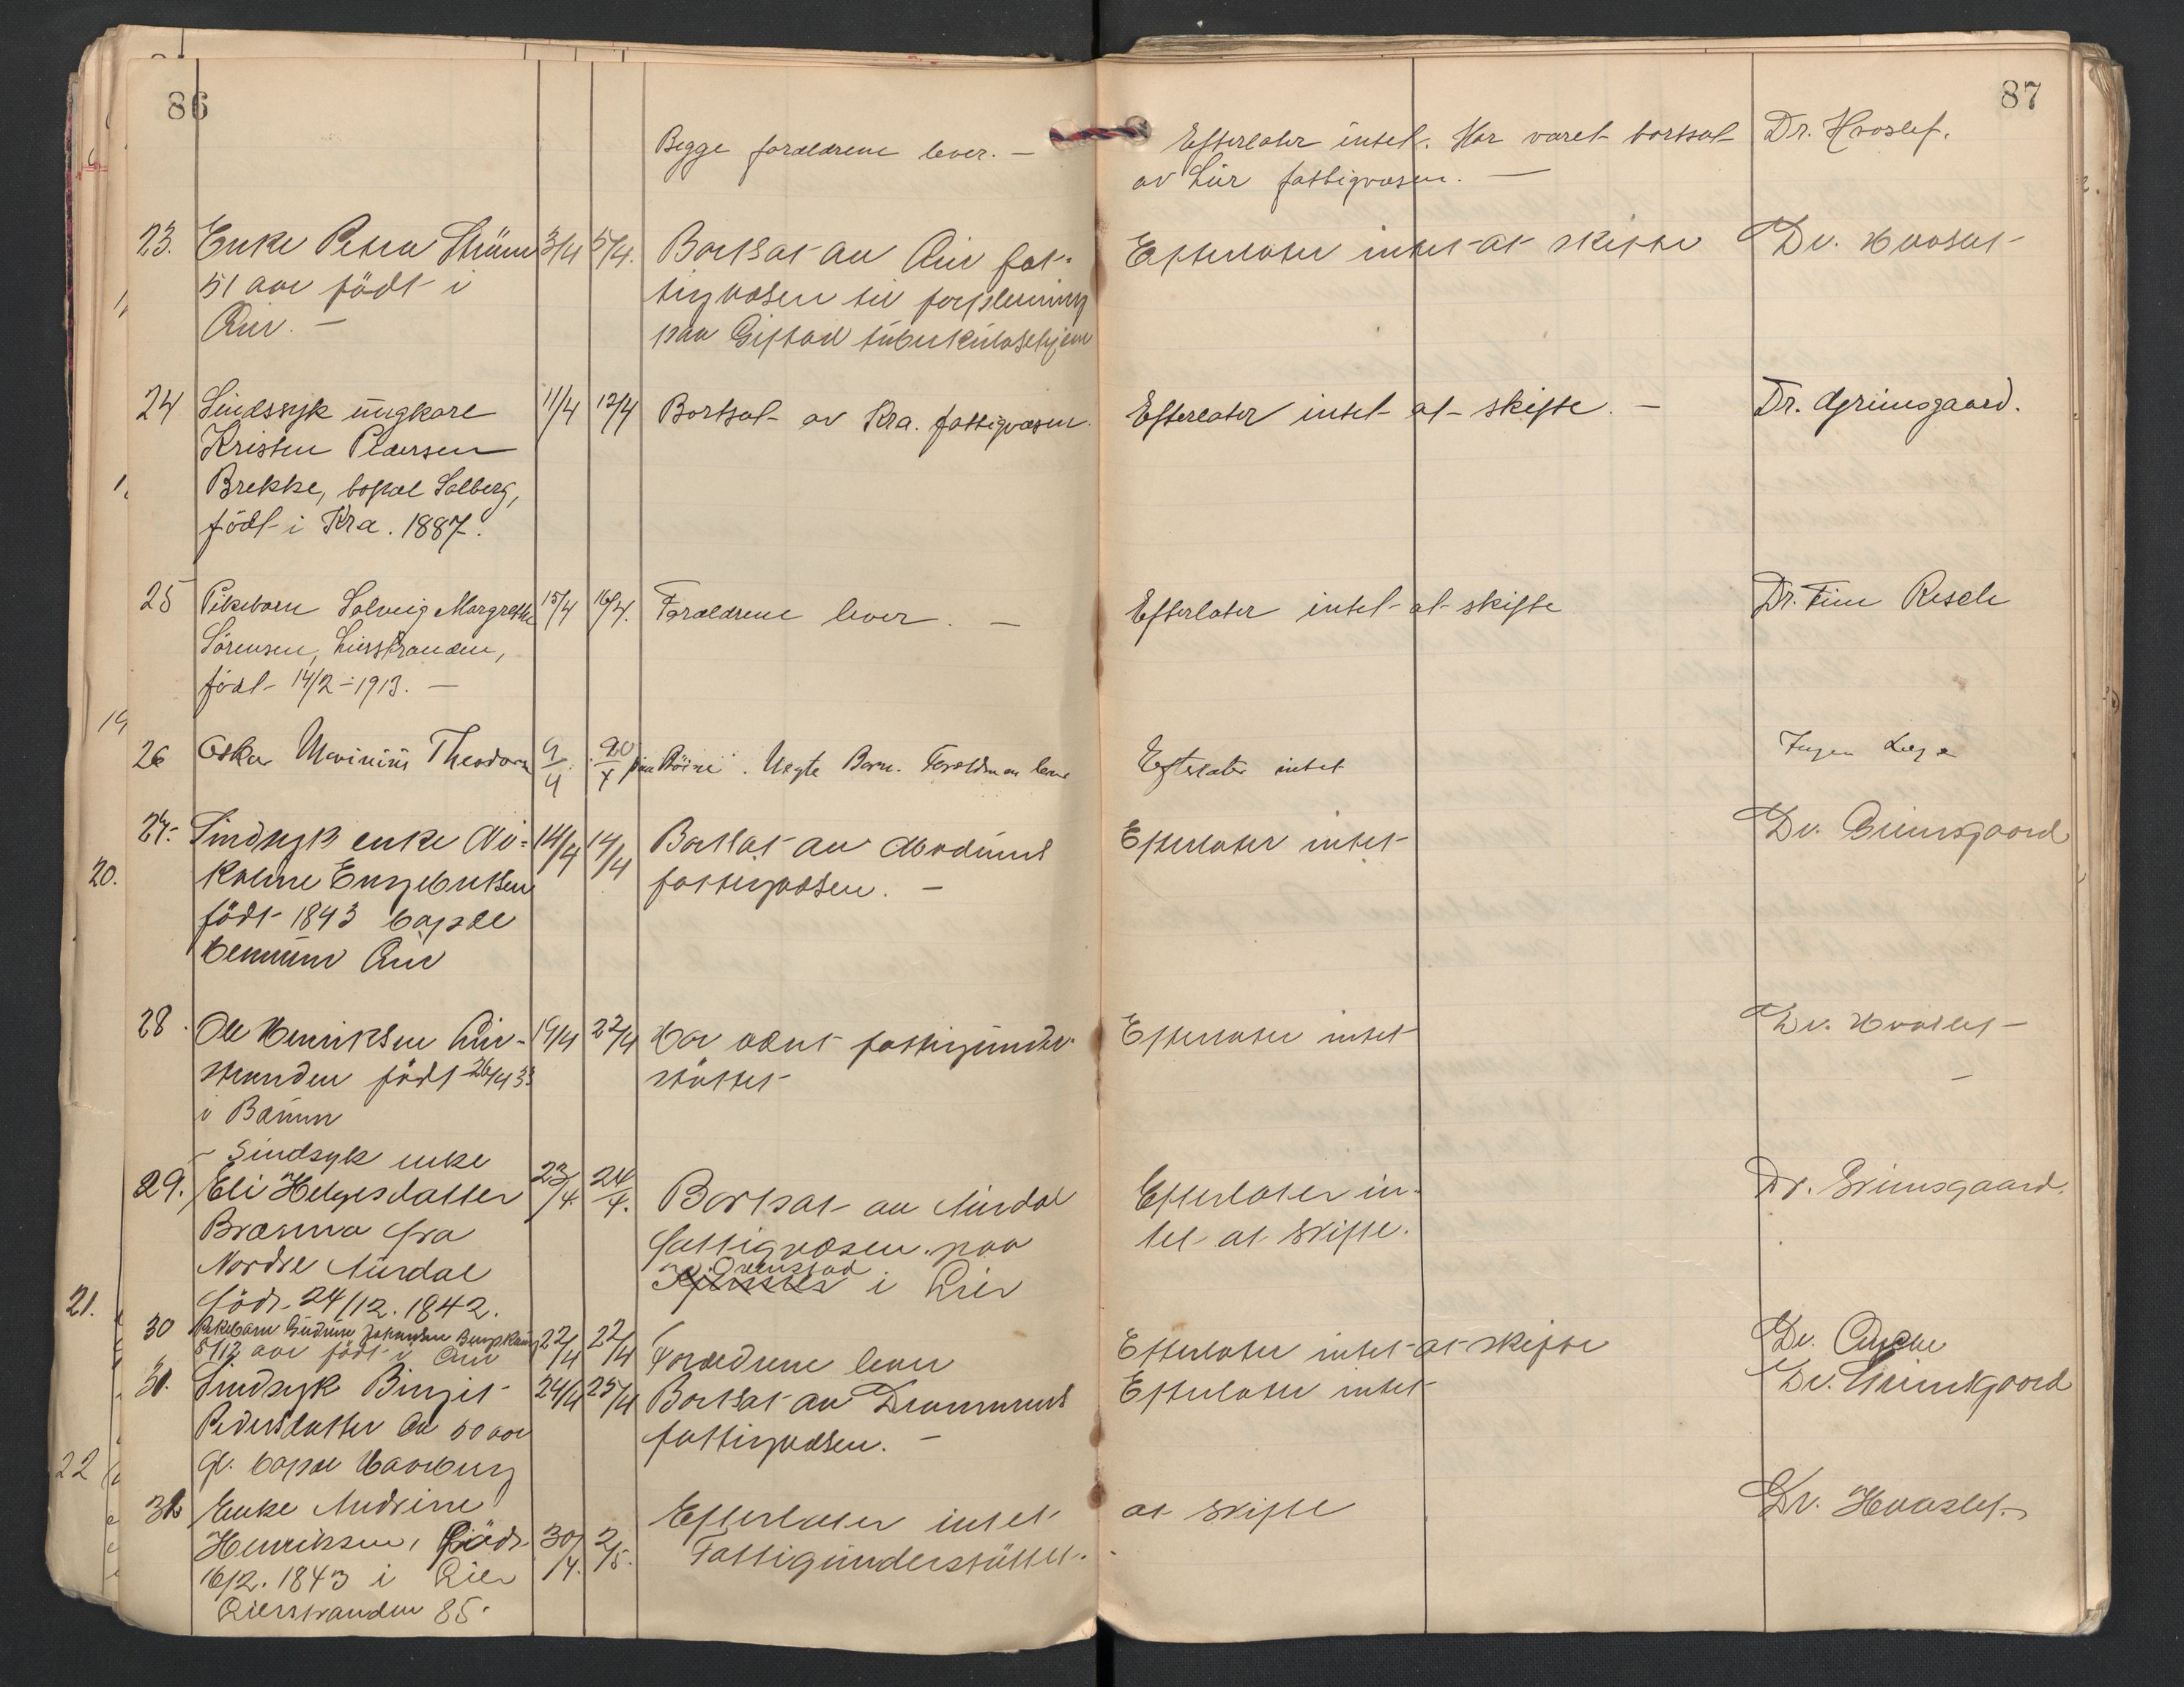 86
87
Begge forældrene lever. —
Efterlater intet. Har været bortsat
av Lier fattigvæsen. —
Dr. Hvoslef.
23. Enke Petra
51 aar födt i
Lier. —
3/4 5/4.
Bortsat av Lier fat-
tigvæsen til forpleining
paa Gifstad tüberkülosehjem
Efterlater intet at skifte
Dr. Hvoslef
24 Sindssyk üngkare
Kristen Pedersen
Brekke, bopæl Solberg,
födt i Kra. 1887.
11/4 12/4
Bortsat av Kra. fattigvæsen.
Efterlater intet at skifte. —
Dr. Grimsgaard.
25 Pikebarn Solveig Margrethe
Sörensen, Lierstranden,
födt 14/2-1913. —
15/4 16/4.
Forældrene lever. —
Efterlater intet at skifte
Dr. Finn Resch
26 Oskar Marinius Theodor
9/4 20/4
Uegte Barn. Foreldrene lever
Efterlater intet
Ingen Læge
27. Sindsyk enke Ni-
koline Engebretsen
födt 1843 bopæl
Lier
14/4 14/4
Bortsat av Modums
fattigvæsen. —
Efterlater intet
Dr. Grimsgaard
28. Ole Henriksen Lier-
stranden födt 26/4 33
i Bærum
19/4 22/4
Har været fattigünder-
stöttet
Efterlater intet
Dr. Hvoslef
—
Sindsyk enke
29. Eli Helgesdatter
Brænna fra
Nordre Aürdal
födt 24/12. 1842.
23/4. 24/4.
Bortsat av Aürdal
fattigvæsen paa
Oreenstad
i Lier
Efterlater in-
tet at skifte.
Dr. Grimsgaard.
30 Pikebarn Güdrün Johansen
5 1/12 aar födt i Lier
22/4 22/4
Forældrene lever
Efterlater intet at skifte
Dr.
31. Sindsyk Birgit
Pedersdatter ca 50 aar
gl. bopæl Haavberg
24/4 25/4
Bortsat av Drammens
fattigvæsen. —
Efterlater intet
Dr. Grimsgaard
32 Enke Andrine
Henriksen, födt
16/2. 1843 i Lier
Lierstranden 85.
30/4. 2/5.
Efterlater intet
at skifte
Fattigünderstöttet.
Dr. Hvoslef.
19
20.
21.
22